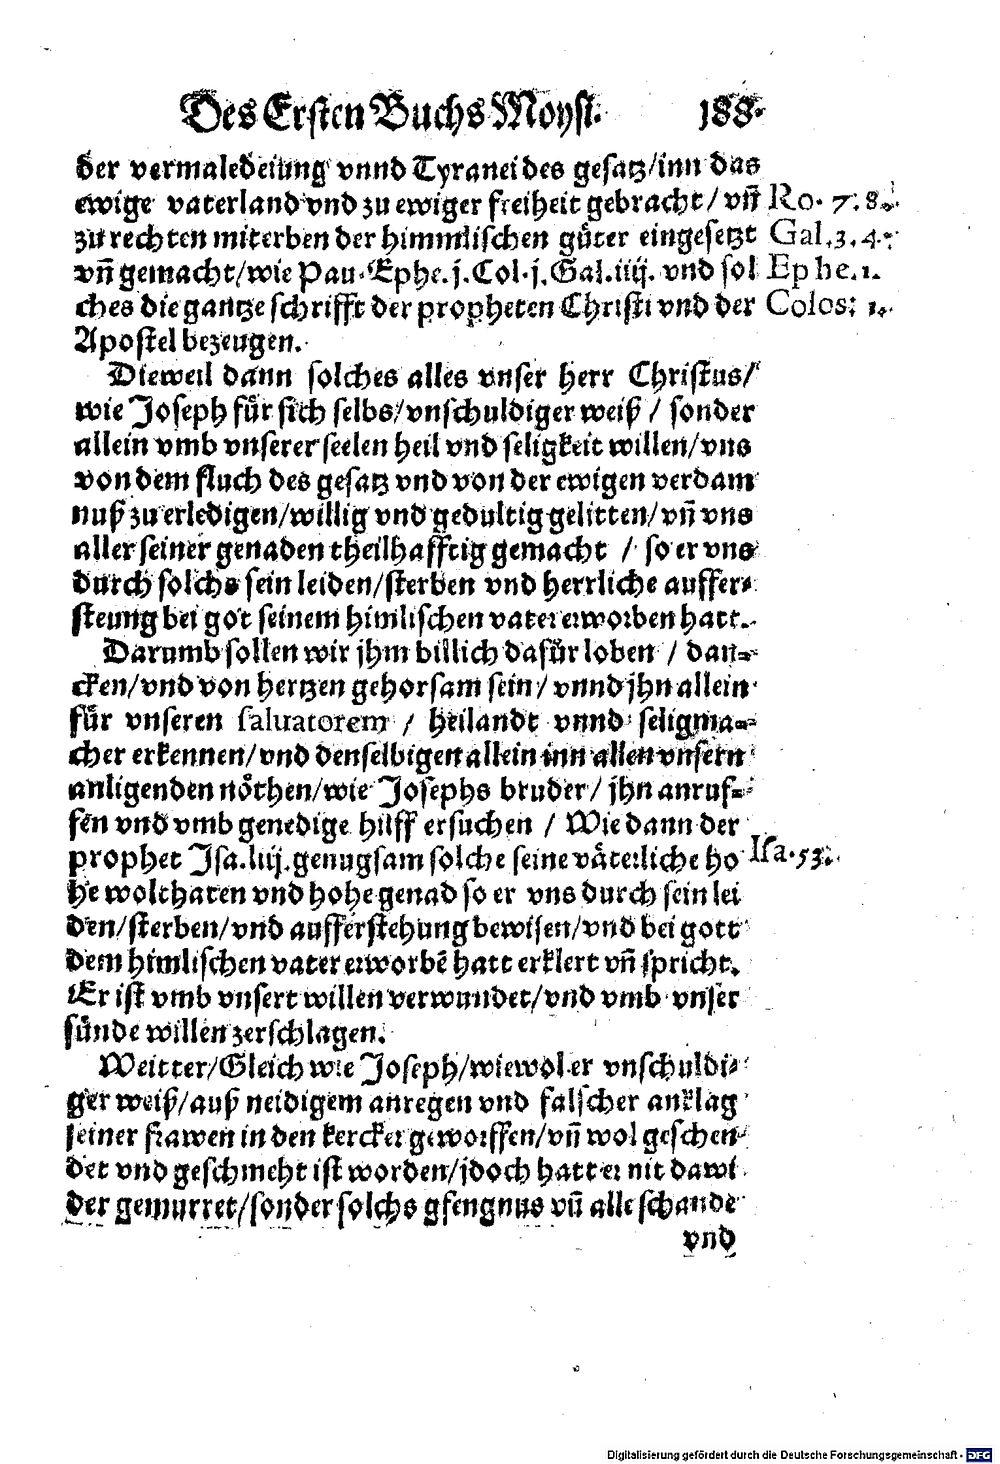 Des Ersten Buchs Moysi. 188.
der vermaledeiung vnnd Tyranei des gesatz/inn das
ewige vaterland vnd zu ewiger freiheit gebracht/ vñ Ro. 7. 8.
zu rechten miterben der himmlischen gůter eingesetzt Gal. 3. 4.
vñ gemacht/wie Pau. Ephe. j. Col. j. Gal. iiij. vnd sol Ephe. 1.
ches die gantze schrifft der propheten Christi vnd der Colos. 1.
Apostel bezeugen.
Dieweil dann solches alles vnser herr Christus/
wie Joseph fůr sich selbs/vnschuldiger weiß / sonder
allein vmb vnserer seelen heil vnd seligkeit willen/vns
von dem fluch des gesatz vnd von der ewigen verdam
nuß zu erledigen/willig vnd gedultig gelitten/vñ vns
aller seiner genaden theilhafftig gemacht / so er vns
durch solchs sein leiden/sterben vnd herrliche auffer-
steung bei got seinem himlischen vater erworben hatt.
Darumb sollen wir jhm billich dafůr loben / dan-
cken/vnd von hertzen gehorsam sein/ vnnd jhn allein
fůr vnseren saluatorem / heilandt vnnd seligma-
cher erkennen/vnd denselbigen allein inn allen vnsern
anligenden nőthen/wie Josephs bruder/ jhn anruf-
fen vnd vmb genedige hilff ersuchen / Wie dann der
prophet Jsa. liij. genugsam solche seine våterliche ho Isa. 53.
he wolthaten vnd hohe genad so er vns durch sein lei
den/sterben/vnd aufferstehung bewisen/vnd bei gott
dem himlischen vater erworbē hatt erklert vñ spricht.
Er ist vmb vnsert willen verwundet/vnd vmb vnser
sůnde willen zerschlagen.
Weitter/Gleich wie Joseph/wiewol er vnschuldi-
ger weiß/auß neidigem anregen vnd falscher anklag
seiner frawen in den kercker geworffen/vñ wol geschen-
det vnd geschmeht ist worden/jdoch hatt er nit dawi
der gemurret/sonder solchs gfengnus vñ alle schande
vnd
Digitalisierung gefördert durch die Deutsche Forschungsgemeinschaft - DFG